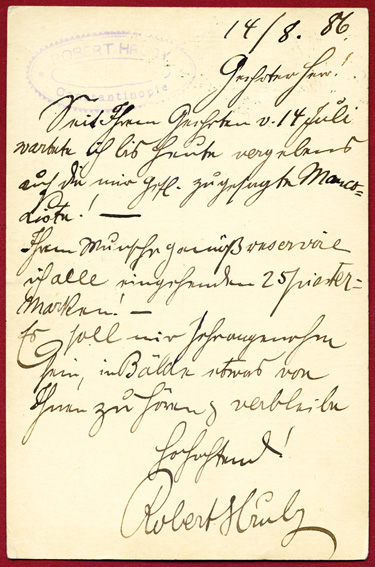 14/8. 86.
OBERT H
Constantinople
Geehrter Herr!
Seit Ihrem Geehrten v. 14 Juli
wartete ich bis heute vergebens
auf die mir gefl. zugesagte Manco-
Liste! —
Ihrem Wunsche gemäß reservire
ich alle eingehenden 25 piaster-
Marken! —
Es soll mir sehr angenehm
sein, in Bälde etwas von
Ihnen zu hören & verbleibe
hochachtend!
Robert Hruby